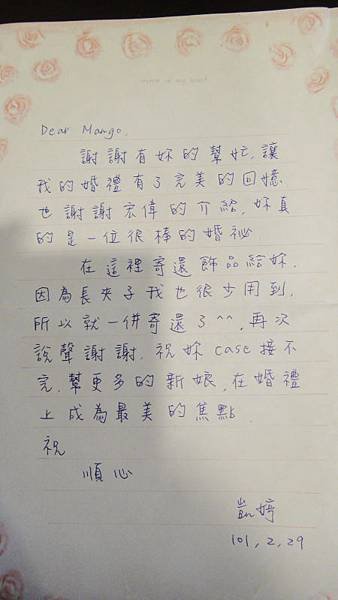 Dear Mango,
謝謝有妳的幫忙,讓
我的婚禮有了完美的回憶
也謝謝宏偉的介紹,妳真
的是一位很棒的婚祕
在這裡寄還飾品給妳,
因為長夾子我也很少用到,
所以就一併寄還了^^,再次
說聲謝謝,祝妳case接不
完,幫更多的新娘,在婚禮
上成為最美的焦點.
祝
順心
凱婷
101,2,29